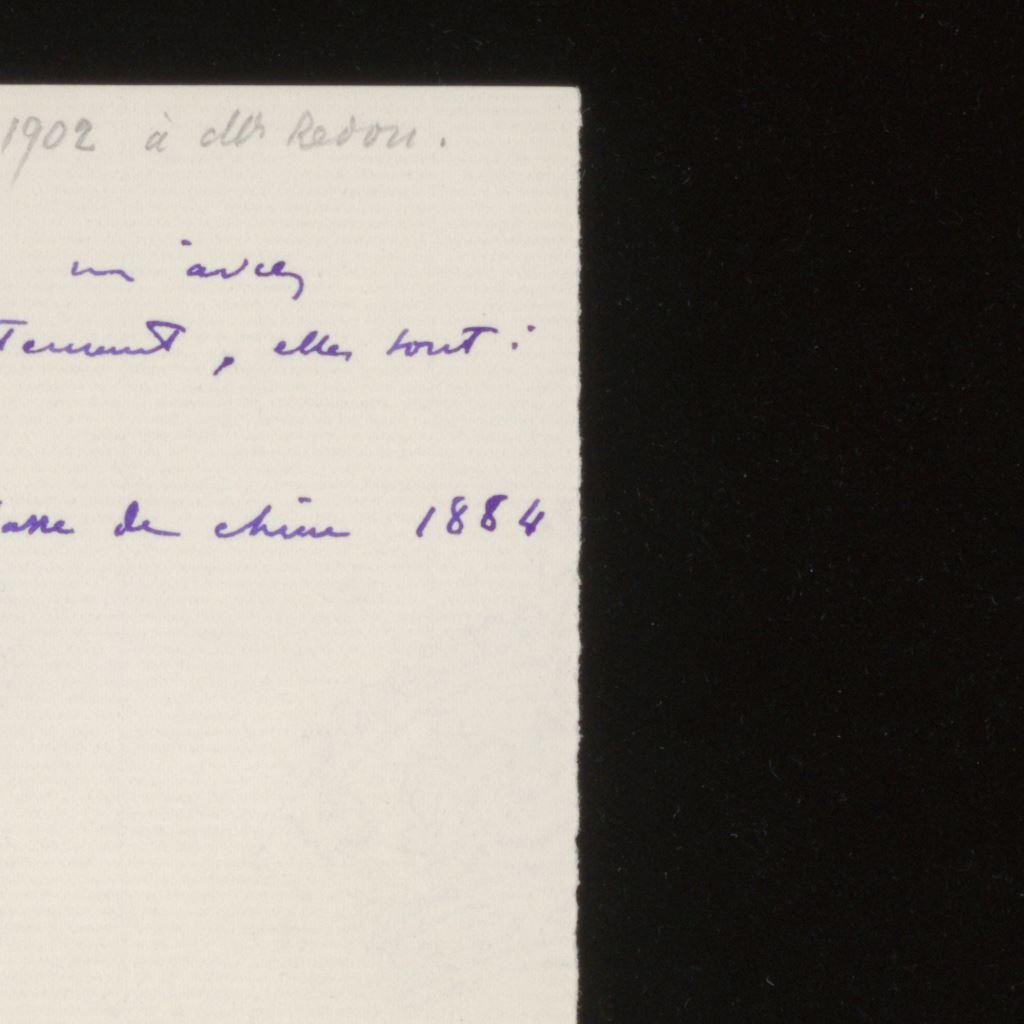 1902 à Mr Redon.
m'avez
tement, elles sont :
asse de chine 1884